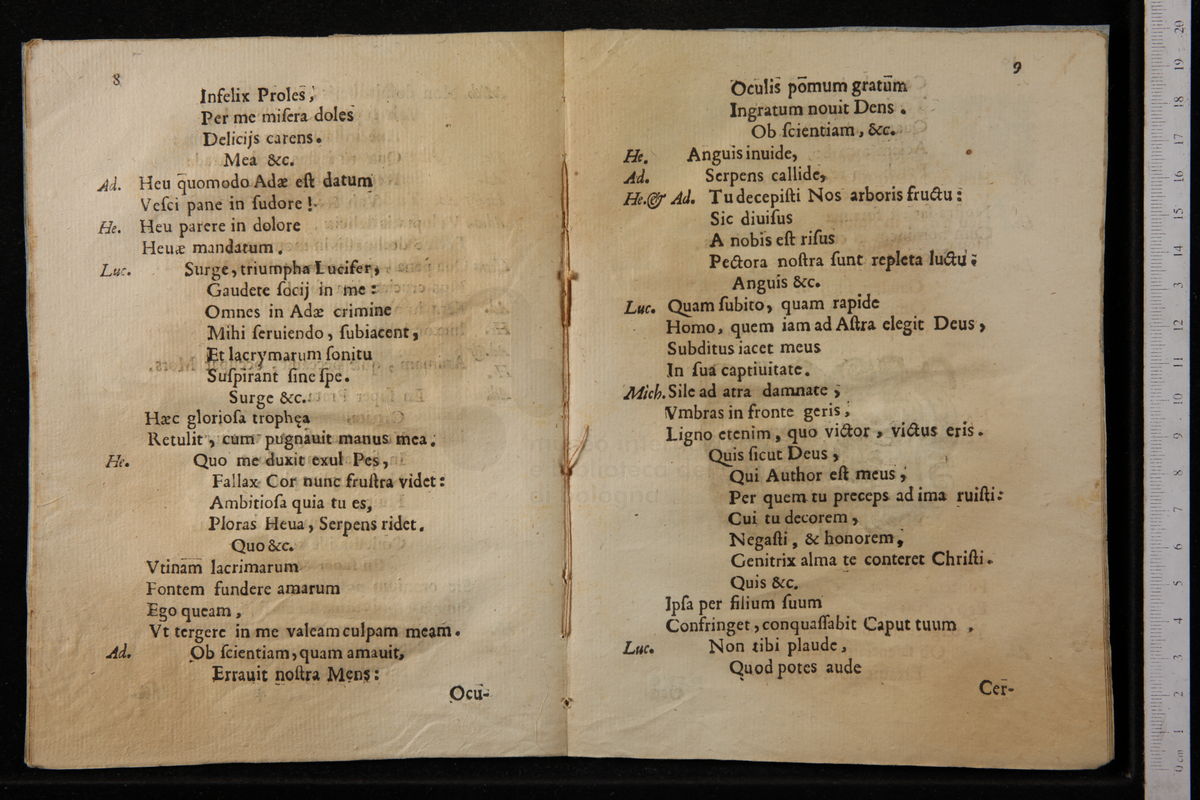 8
Infelix Proles,
Per me miſera doles
Delicijs carens.
Mea &c.
Ad. Heu quomodo Adæ eſt datum
Veſci pane in ſudore!
He. Heu parere in dolore
Heuæ mandatum.
Luc. Surge, triumpha Lucifer,
Gaudete ſocij in me:
Omnes in Adæ crimine
Mihi ſeruiendo, ſubiacent,
Et lacrymarum ſonitu
Suſpirant ſine ſpe.
Surge &c.
Hæc glorioſa trophęa
Retulit, cum pugnauit manus mea.
He. Quo me duxit exul Pes,
Fallax Cor nunc fruſtra videt:
Ambitioſa quia tu es,
Ploras Heua, Serpens ridet.
Quo &c.
Vtinam lacrimarum
Fontem fundere amarum
Ego queam,
Vt tergere in me valeam culpam meam.
Ad. Ob ſcientiam, quam amauit,
Errauit noſtra Mens:
Ocu-
9
Oculis pomum gratum
Ingratum nouit Dens.
Ob ſcientiam, &c.
He. Anguis inuide,
Ad. Serpens callide,
He. & Ad. Tu decepiſti Nos arboris fructu:
Sic diuiſus
A nobis eſt riſus
Pectora noſtra ſunt repleta luctu;
Anguis &c.
Luc. Quam ſubito, quam rapide
Homo, quem iam ad Aſtra elegit Deus,
Subditus iacet meus
In ſua captiuitate.
Mich. Sile ad atra damnate,
Vmbras in fronte geris,
Ligno etenim, quo victor, victus eris.
Quis ſicut Deus,
Qui Author eſt meus,
Per quem tu preceps ad ima ruiſti:
Cui tu decorem,
Negaſti, & honorem,
Genitrix alma te conteret Chriſti.
Quis &c.
Ipſa per filium ſuum
Confringet, conquaſſabit Caput tuum.
Luc. Non tibi plaude,
Quod potes aude
Cer-